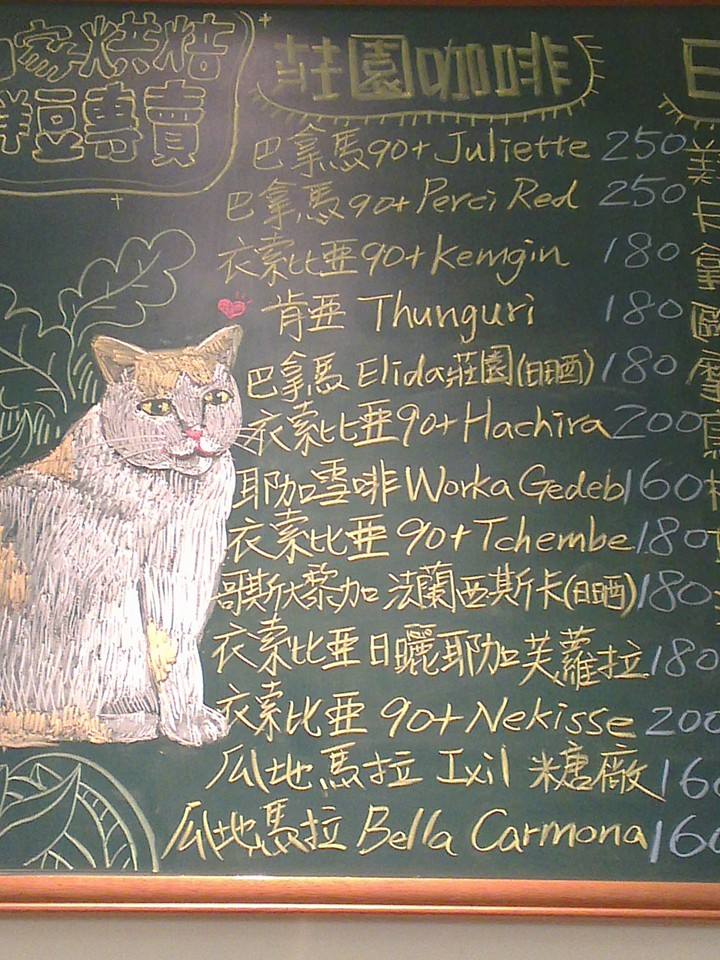 家烘焙
豆專賣
莊園咖啡
巴拿馬90+ Juliette 250
巴拿馬90+ Perci Red 250
衣索比亞90+ Kemgin 180
肯亞 Thunguri 180
巴拿馬 Elida莊園(日晒) 180
衣索比亞90+ Hachira 200
耶加雪啡 Worka Gedeb 160
衣索比亞 90+ Tchembe 180
哥斯大黎加 法蘭西斯卡(日晒) 180
衣索比亞日曬耶加芙蘿拉 180
衣索比亞 90+ Nekisse 200
瓜地馬拉 Ixil 糖廠 160
瓜地馬拉 Bella Carmona 160